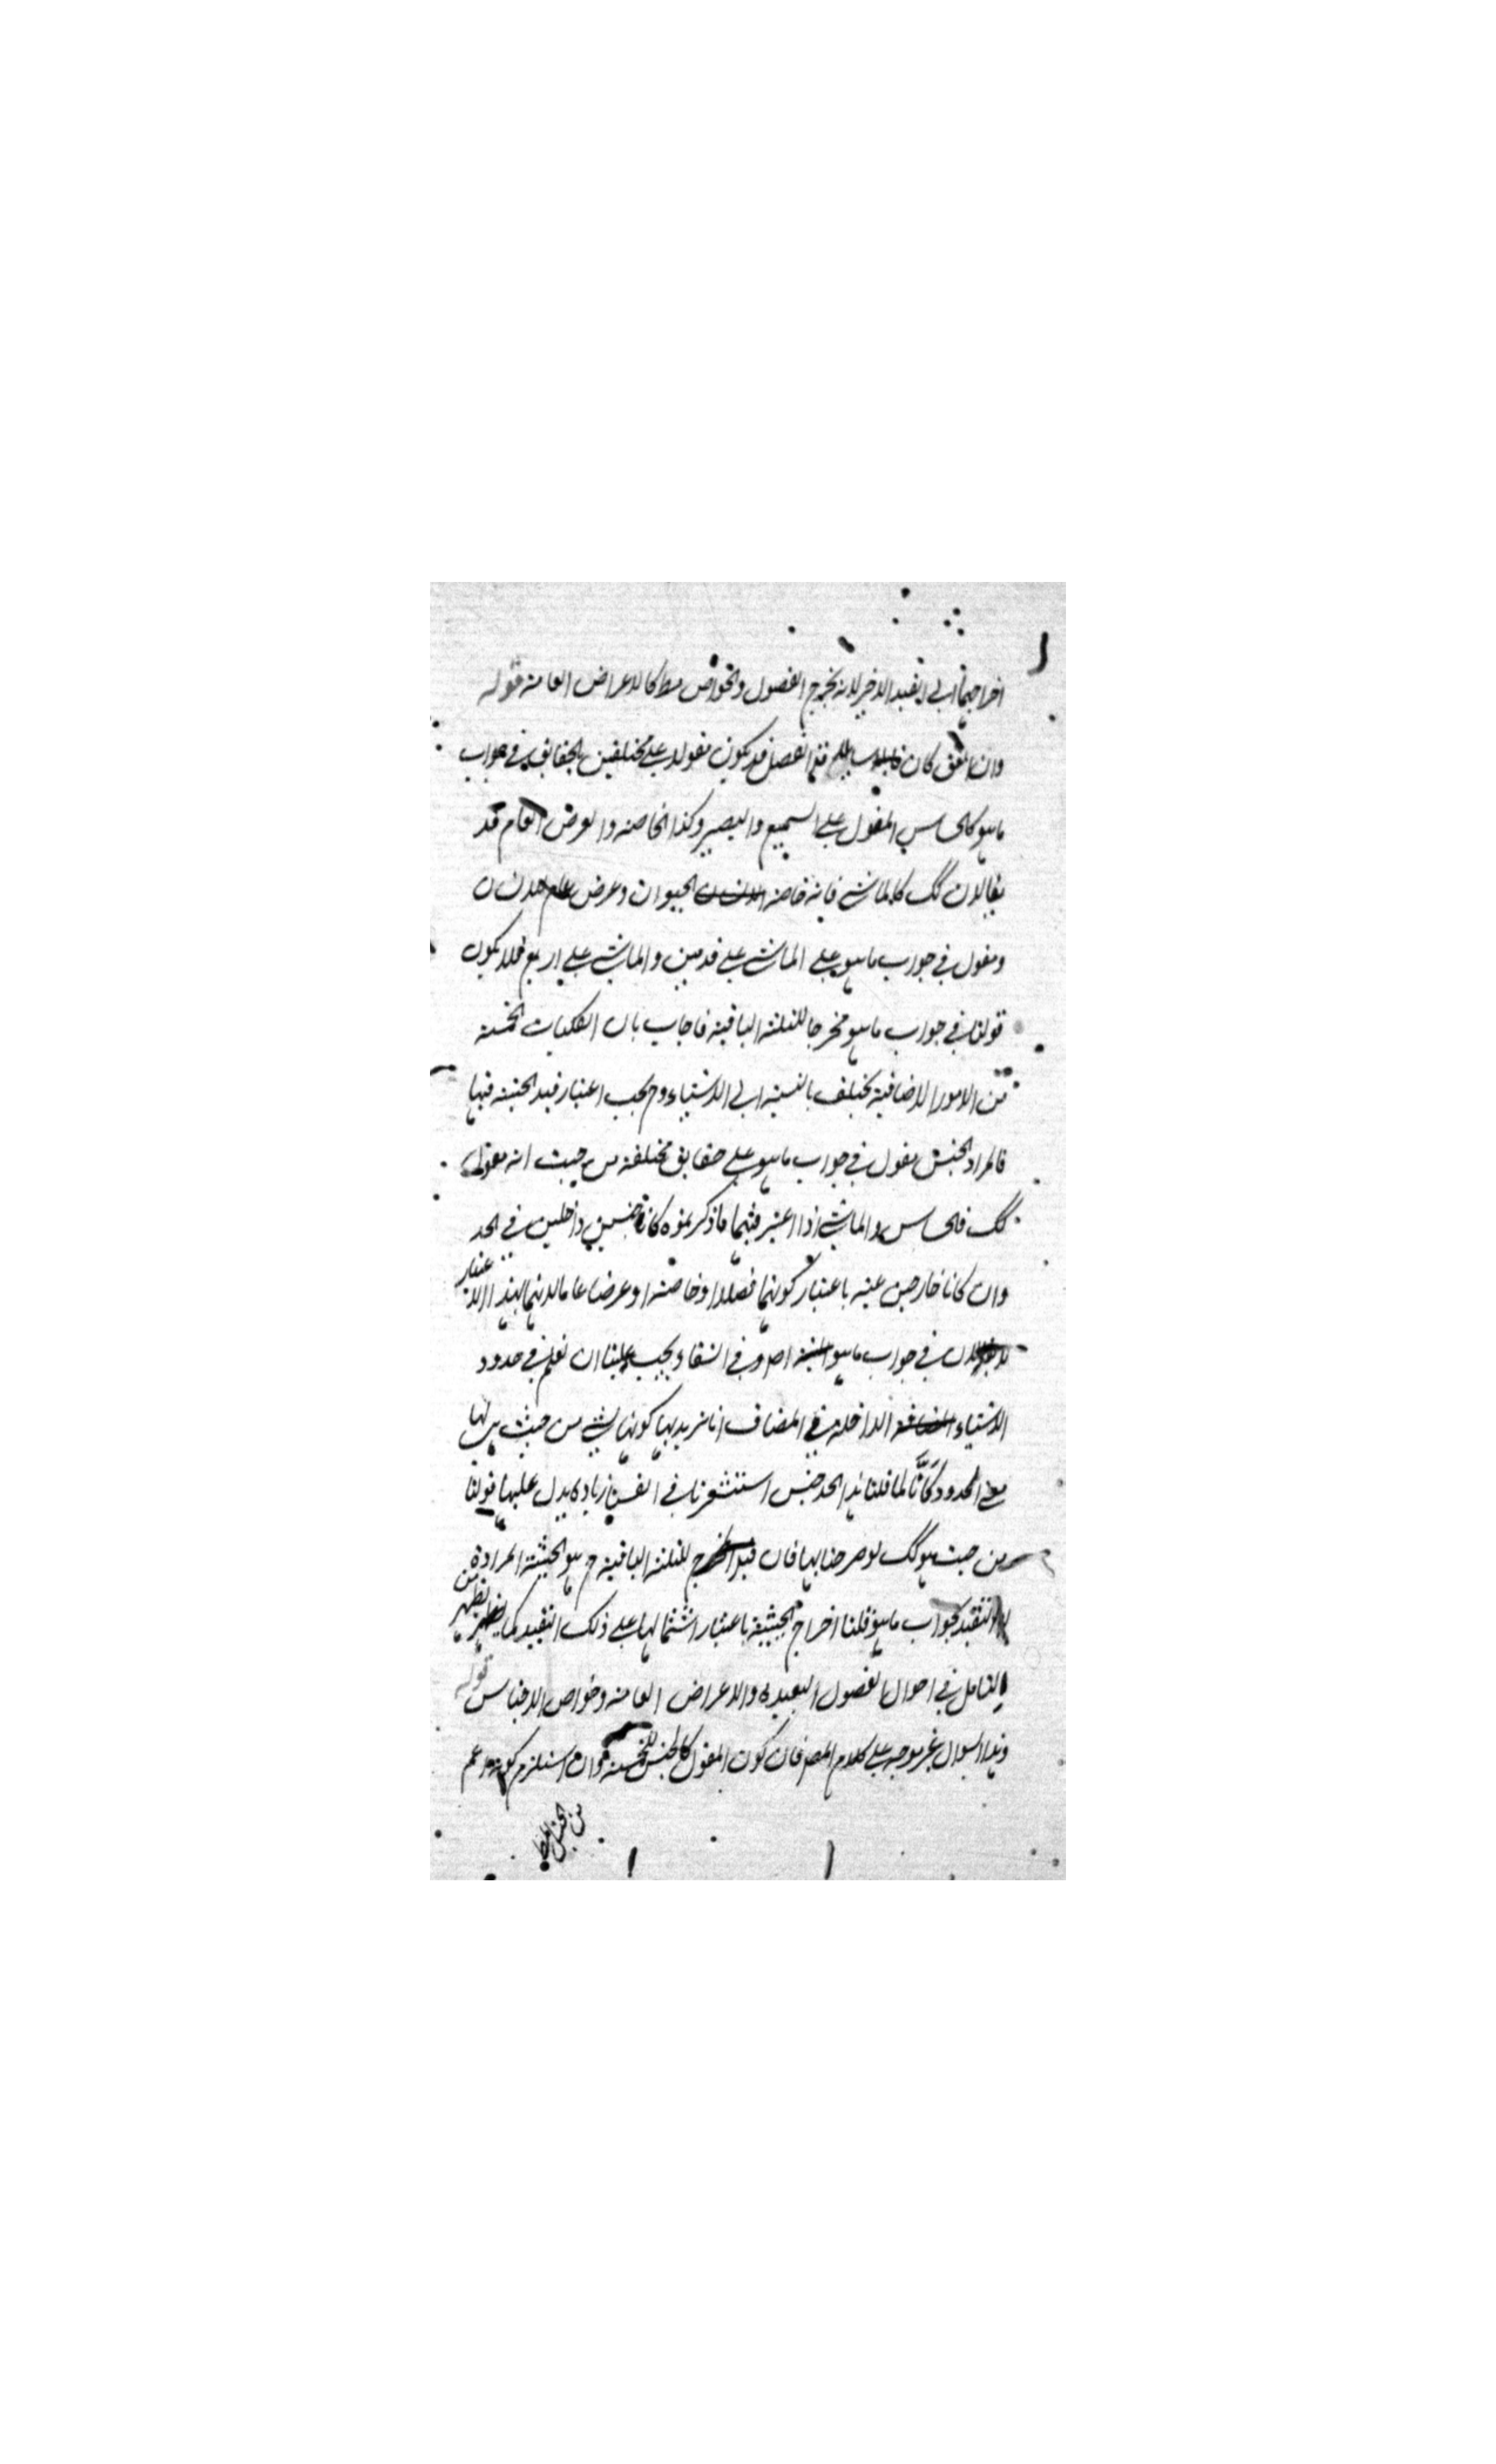 اخراجها الى القيد الاخير لانه يخرج الفصول والخواص مط كالاعراض العامة قوله
وان اتفق كان فان الفصل قد يكون مقولا على مختلفين بالحقايق في جواب
ما هو كالحساس المقول على السميع والبصير وكذا الخاصة والعرض العام قد
يقالان كك كالماشي فانه خاصة الحيوان وعرض عام للانسان
ومقول في جواب ما هو على الماشي على قدمين والماشي على اربع فلا يكون
قولنا في جواب ما هو مخرجا للثلثة الباقية فاجاب بان الكليات الخمسة
من الامور الاضافية تختلف بالنسبة الى الاشياء وح يجب اعتبار قيد الحيثية فيها
فالمراد الجنس مقول في جواب ما هو على حقايق مختلفة من حيث انه مقول
كك فالحساس والماشي اذا اعتبر فيهما ما ذكرتموه كانا جنسين داخلين في الحد
وان كانا خارجين عنه باعتبار كونهما فصلا او خاصة او عرضا عاما لانهما بهذا الاعتبار
لا يقالان في جواب ما هو اصلا وفي الشفاء يجب علينا ان نعلم في حدود
الاشياء الداخلة في المضاف انا نريد بها كونها لشي من حيث هي لها
معنى الحدود كانا لما قلنا هذا الحد جنس استشعرنا في انفسنا زيادة يدل عليها قولنا
من حيث هو كك لو صرحنا بها فان قيد المخرج للثلثة الباقية ح هو الحيثية المرادة من
التقييد بجواب ما هو قلنا اخراج الحيثية باعتبار اشتمالها على ذلك التقييد كما يظهر
بالتامل في احوال الفصول البعيدة والاعراض العامة وخواص الاجناس قوله
وهذا السوال غير موجه على كلام المص فان كون المقول كالجنس للخمسة وان استلزم كونه اعم
من الجنس المط